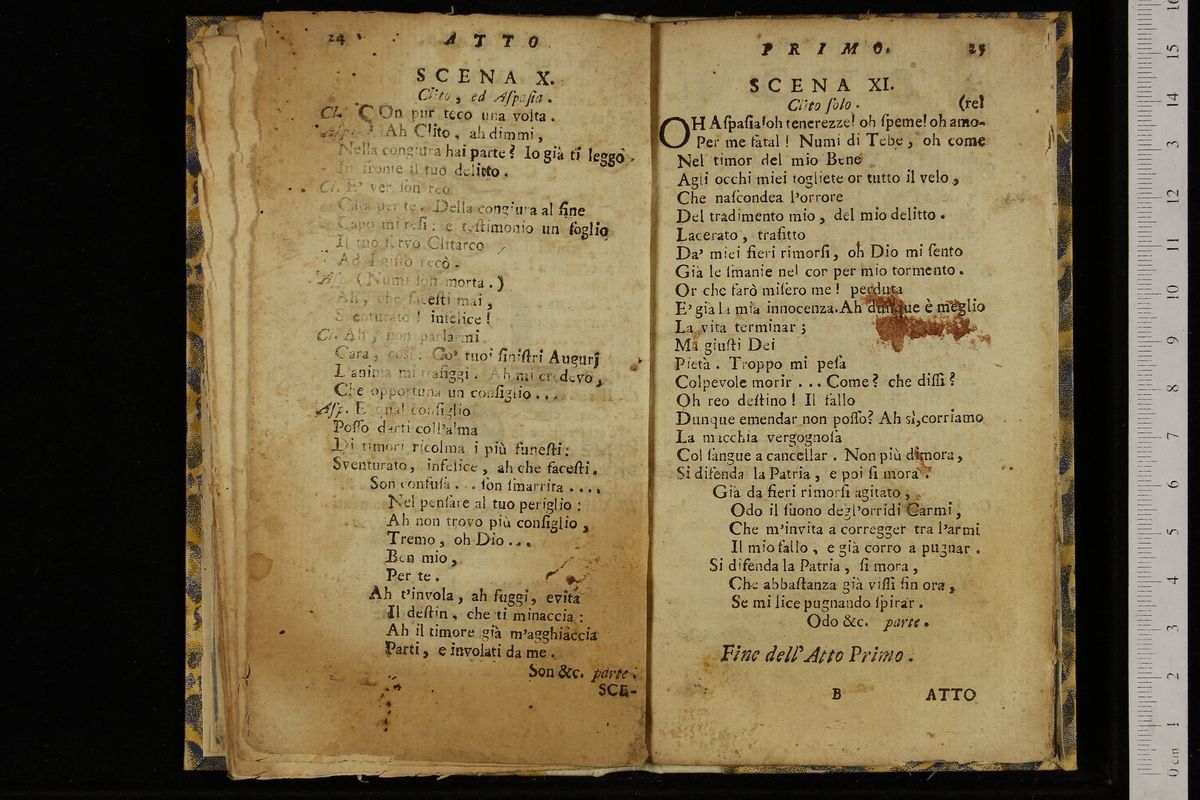 24 ATTO
SCENA X.
Clito, ed Aſpaſia.
Cl. COn pur teco una volta.
Aſp. Ah Clito, ah dimmi,
Nella congiura hai parte? Io già ti leggo
In fronte il tuo delitto.
Cl. E' ver ſon reo
Cara per te. Della congiura al fine
Capo mi reſi: e teſtimonio un foglio
Il tuo ſervo Clitarco
Ad Egiſto recò.
Aſp. (Numi ſon morta.)
Ah, che faceſti mai,
Sventurato! infelice!
Cl. Ah, non parlarmi
Cara, così: Co' tuoi ſiniſtri Augurj
L'anima mi trafiggi. Ah mi credevo,
Che opportuna un conſiglio...
Aſp. E qual conſiglio
Poſſo darti coll'alma
Di timori ricolma i più funeſti:
Sventurato, infelice, ah che faceſti.
Son confuſa... ſon ſmarrita....
Nel penſare al tuo periglio:
Ah non trovo più conſiglio,
Tremo, oh Dio...
Ben mio,
Per te.
Ah t'invola, ah fuggi, evita
Il deſtin, che ti minaccia:
Ah il timore già m'agghiaccia
Parti, e involati da me.
Son &c. parte.
SCE-
PRIMO. 25
SCENA XI.
Clito ſolo. (re!
OH Aſpaſia! oh tenerezze! oh ſpeme! oh amo-
Per me fatal! Numi di Tebe, oh come
Nel timor del mio Bene
Agli occhi miei togliete or tutto il velo,
Che naſcondea l'orrore
Del tradimento mio, del mio delitto.
Lacerato, trafitto
Da' miei fieri rimorſi, oh Dio mi ſento
Già le ſmanie nel cor per mio tormento.
Or che farò miſero me! perduta
E' già la mia innocenza. Ah dunque è meglio
La vita terminar;
Ma giuſti Dei
Pietà. Troppo mi peſa
Colpevole morir... Come? che diſſi?
Oh reo deſtino! Il fallo
Dunque emendar non poſſo? Ah sì, corriamo
La macchia vergognoſa
Col ſangue a cancellar. Non più dimora,
Si difenda la Patria, e poi ſi mora.
Già da fieri rimorſi agitato,
Odo il ſuono degl'orridi Carmi,
Che m'invita a corregger tra l'armi
Il mio fallo, e già corro a pugnar.
Si difenda la Patria, ſi mora,
Che abbaſtanza già viſſi fin ora,
Se mi lice pugnando ſpirar.
Odo &c. parte.
Fine dell' Atto Primo.
B ATTO
0 cm 1 2 3 4 5 6 7 8 9 10 11 12 13 14 15 16